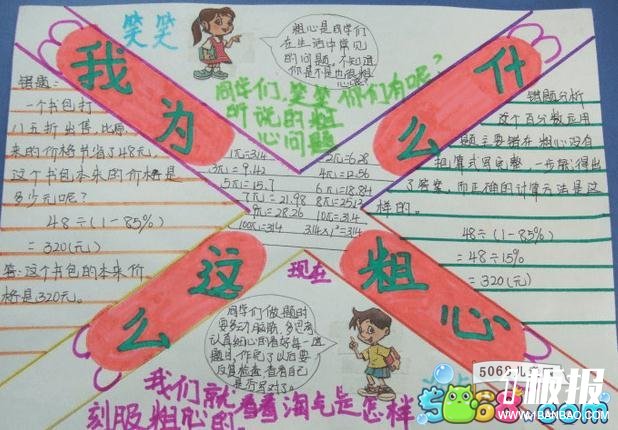 笑笑
粗心是同学们
在生活中常见
的问题,不知道
你是不是也很粗
心呢?
我为什么
这么粗心
同学们,笑笑
所说的粗
心问题
你们有呢?
错题:
一个书包打
八五折出售,比原
来的价格节省了48元,
这个书包本来的价格是
多少元呢?
48÷(1-85%)
=320(元)
答:这个书包的本来价
格是320元。
1π=3.14 2π=6.28
3π=9.42 4π=12.56
5π=15.7 6π=18.84
7π=21.98 8π=25.12
9π=28.26 10π=314
100π=314 314×1²=314
错题分析
这个百分数应用
题主要错在粗心没有
把算式写完整,一步就得出
了答案,而正确的计算方法是这
样的。
48÷(1-85%)
=48÷15%
=320(元)
现在
同学们做题时
要多动脑筋,多思考
认真细心的看好每一道
题目,作完了以后要
反复检查,查看自己
是否写对了。
我们就看看淘气是怎样
刻服粗心的。
5068儿
板报
www.1BANBAO.com
5068.com